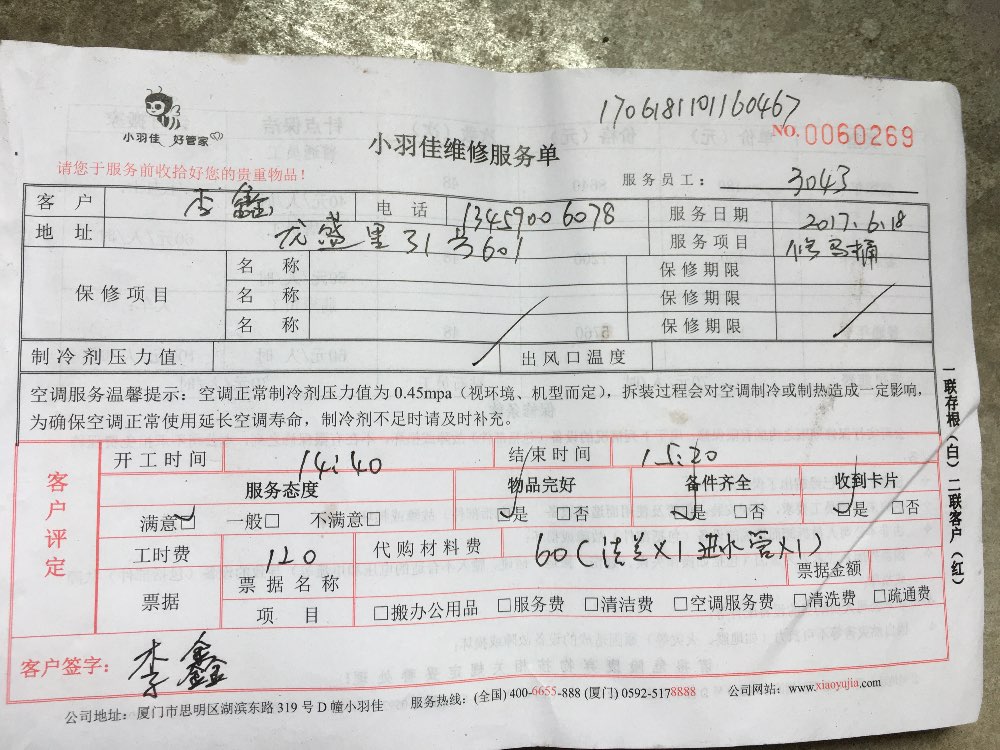 1706181101160467
小羽佳 好管家
NO.0060269
小羽佳维修服务单
请您于服务前收拾好您的贵重物品！
服务员工： 3043
客户 李鑫 电话 13459006078 服务日期 2017.6.18
地址 龙盛里31号601 服务项目 修马桶
保修项目 名称 保修期限
名称 保修期限
名称 保修期限
制冷剂压力值 出风口温度
空调服务温馨提示：空调正常制冷剂压力值为 0.45mpa（视环境、机型而定），拆装过程会对空调制冷或制热造成一定影响，
为确保空调正常使用延长空调寿命，制冷剂不足时请及时补充。
一联存根（白）二联客户（红）
客户评定
开工时间 14:40 结束时间 15:20
服务态度 物品完好 备件齐全 收到卡片
满意□ 一般□ 不满意□ □是 □否 □是 □否 □是 □否
工时费 120 代购材料费 60（法兰X1 进水管X1）
票据 票据名称 票据金额
项目 □搬办公用品 □服务费 □清洁费 □空调服务费 □清洗费 □疏通费
客户签字： 李鑫
公司地址：厦门市思明区湖滨东路 319 号 D 幢小羽佳 服务热线：(全国) 400-6655-888 (厦门) 0592-5178888 公司网站：www.xiaoyujia.com